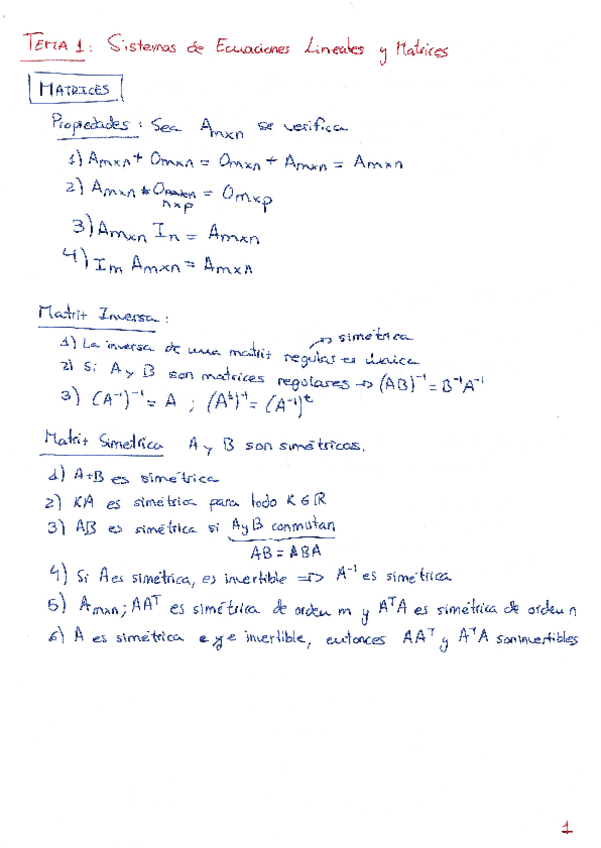 TEMA 1: Sistemas de Ecuaciones Lineales y Matrices
MATRICES
Propiedades: Sea Amxn se verifica
1) Amxn + Omxn = Omxn + Amxn = Amxn
2) Amxn * Onxp = Omxp
3) Amxn In = Amxn
4) Im Amxn = Amxn
Matriz Inversa:
→ simétrica
1) La inversa de una matriz regular es única
2) Si A y B son matrices regulares → (AB)⁻¹ = B⁻¹A⁻¹
3) (A⁻¹)⁻¹ = A ; (Aᵗ)⁻¹ = (A⁻¹)ᵗ
Matriz Simétrica A y B son simétricas.
1) A+B es simétrica
2) KA es simétrica para todo K ∈ ℝ
3) AB es simétrica si A y B conmutan
AB = ABA
4) Si A es simétrica, es invertible => A⁻¹ es simétrica
5) Amxn; AAᵀ es simétrica de orden m y AᵀA es simétrica de orden n
6) A es simétrica e invertible, entonces AAᵀ y AᵀA son invertibles
1